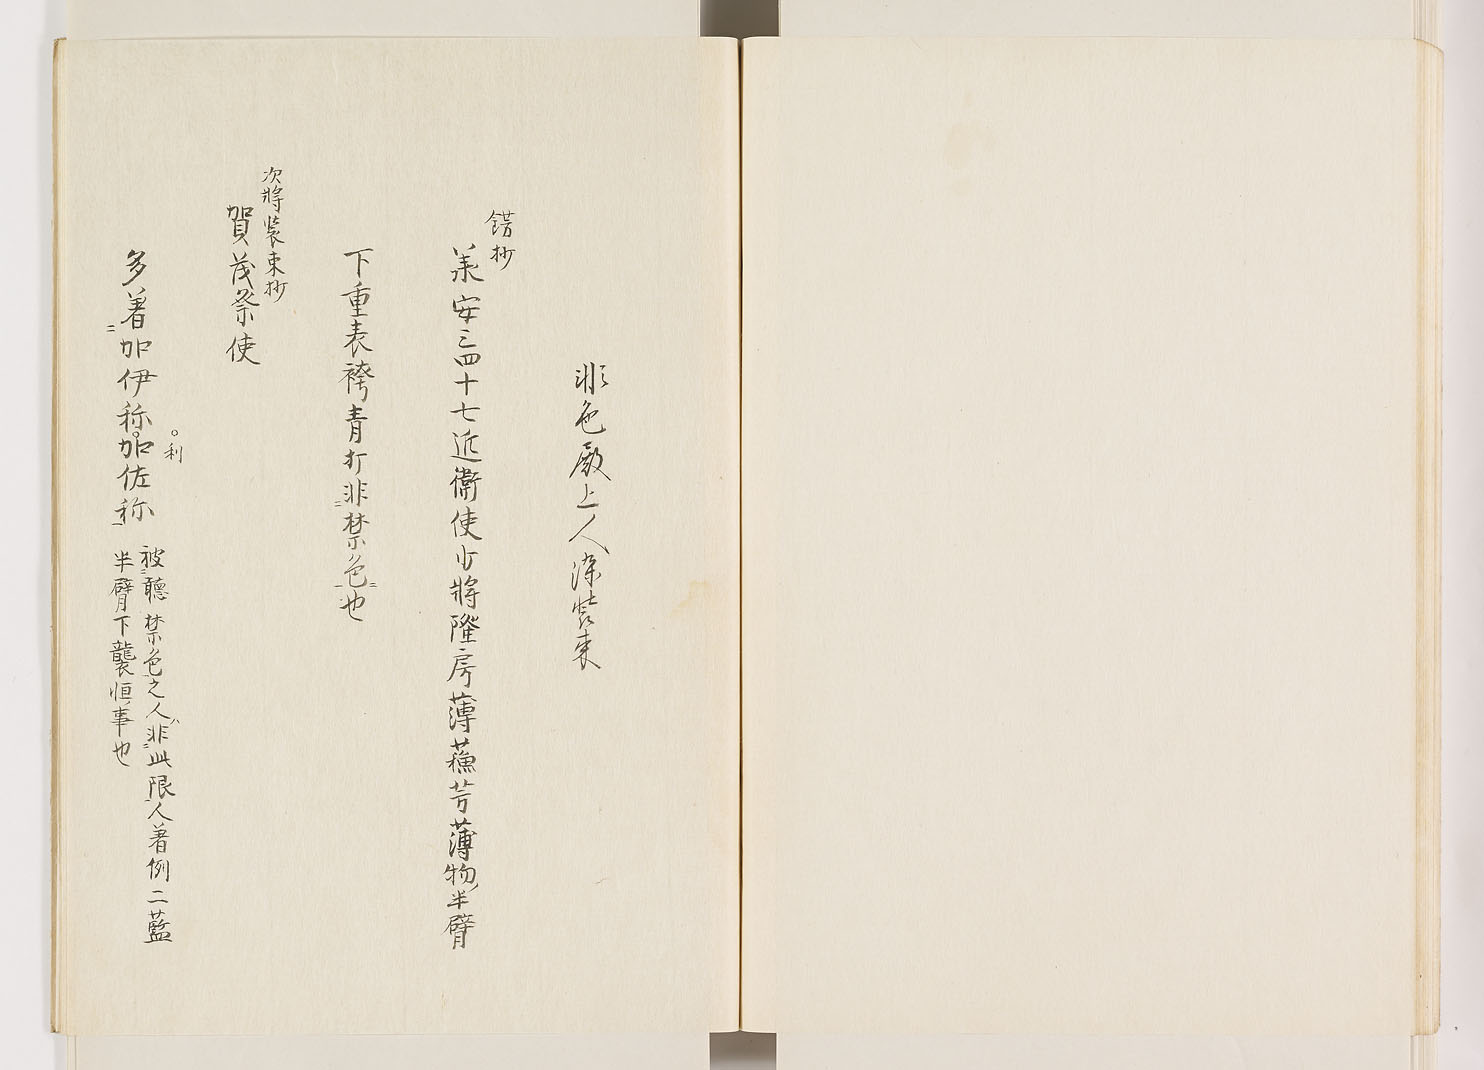 非色殿上人染装束
餝抄
承安三四十七近衛使少將隆房薄蘓芳薄物半臂
下重表袴青打非禁色也
次將装束抄
賀茂祭使
多著加伊称加佐称
利
被聴禁色之人ハ非此限人著例二藍
半臂下襲恒事也